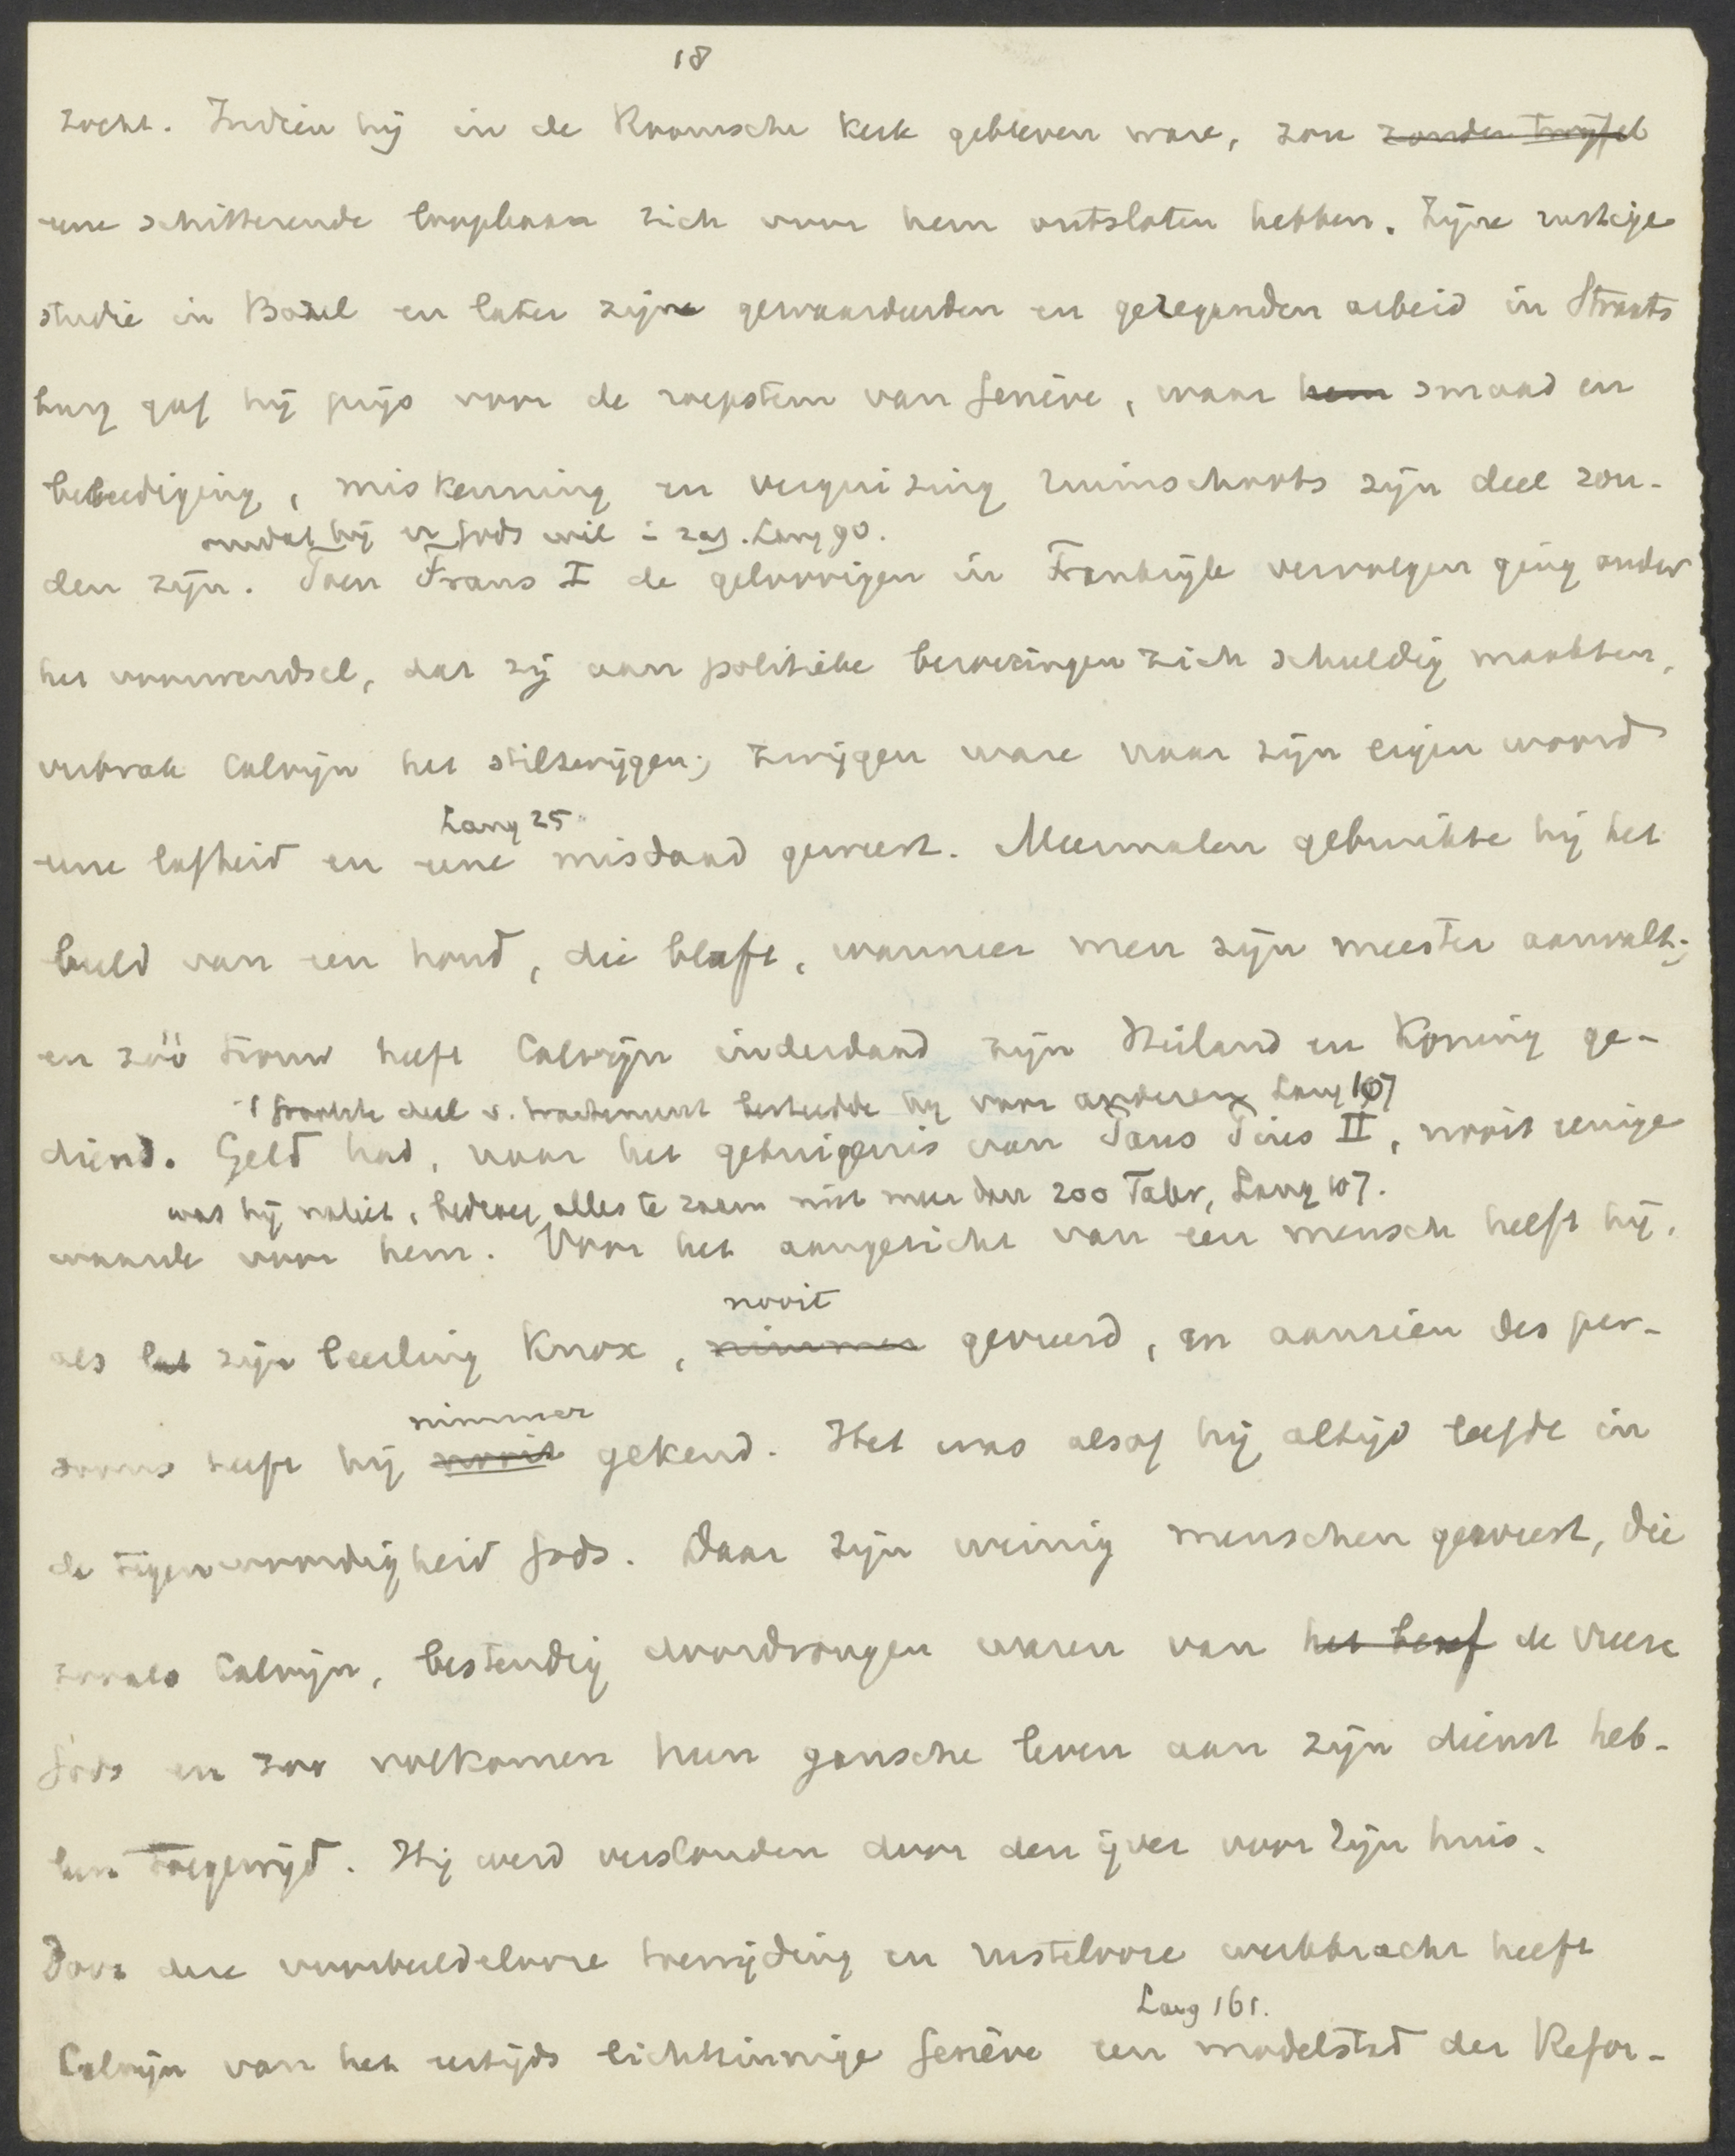 18
zocht. Indien hij in de Roomsche kerk gebleven ware, zou zonder twijfel
eene schitterende loopbaan zich voor hem ontsloten hebben. Zijne rustige
studie in Bazel en later zijne gewaardeerden en gezegenden arbeid in Straats
burg gaf hij prijs voor de roepstem van Genève, waar hem smaad en
beleediging, miskenning en verguizing ruimschoots zijn deel zou-
omdat hij er Gods wil in zag. Lang 90.
den zijn. Toen Frans I de geloovigen in Frankrijk vervolgen ging onder
het voorwendsel, dat zij aan politieke beroeringen zich schuldig maakten,
verbrak Calvijn het stilzwijgen; zwijgen ware naar zijn eigen woord
Lang 25
eene lafheid en eene misdaad geweest. Meermalen gebruikte hij het
beeld van een hond, die blaft, wanneer men zijn meester aanvalt;
en zóó trouw heeft Calvijn inderdaad zijn Heiland en Koning ge-
't grootste deel v. tractement besteedde hij voor anderen Lang 107
diend. Geld had, naar het getuigenis van Paus Pius II, nooit eenige
was hij naliet, bedroeg alles te zaam niet meer dan 200 Taler, Lang 107.
waarde voor hem. Voor het aangezicht van een mensch heeft hij,
nooit
als zijn leerling Knox, nimmer gevreesd, en aanzien des per-
nimmer
soons heeft hij nooit gekend. Het was alsof hij altijd leefde in
de tegenwoordigheid Gods. Daar zijn weinig menschen geweest, die
zooals Calvijn, bestendig doordrongen waren van het besef de vreeze
Gods en zoo volkomen hun gansche leven aan zijn dienst heb-
ben toegewijd. Hij werd verslonden door den ijver voor Zijn huis.
Door deze voorbeeldelooze toewijding en rustelooze werkkracht heeft
Lang 161.
Calvijn van het eertijds lichtzinnige Genève een modelstad der Refor-